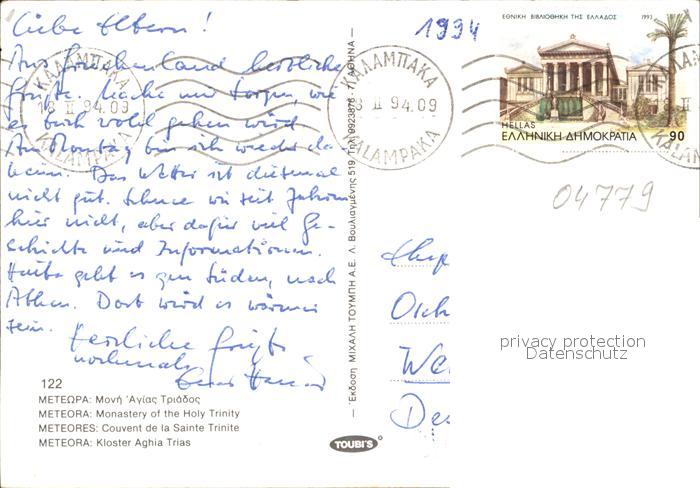 Liebe Eltern!
Aus Griechenland herzliche
Grüße. Mache mir Sorgen, wie
es Euch wohl gehen wird.
Am Montag bin ich wieder da-
heim. Das Wetter ist diesmal
nicht gut. Schnee wie seit Jahren
hier nicht, aber dafür viel Ge-
schichte und Informationen.
Heute geht es gen Süden, nach
Athen. Dort wird es wärmer
sein.
Herzliche Grüße
nochmals
122
ΜΕΤΕΩΡΑ: Μονή Ἁγίας Τριάδος
METEORA: Monastery of the Holy Trinity
METEORES: Couvent de la Sainte Trinite
METEORA: Kloster Aghia Trias
TOUBI'S
Ἔκδοση ΜΙΧΑΛΗ ΤΟΥΜΠΗ Α.Ε. Λ. Βουλιαγμένης 519, Τηλ. 9923876 - 7, ΑΘΗΝΑ
1994
ΚΑΛΑΜΠΑΚΑ
18 II 94.09
KALAMPAKA
ΚΑΛΑΜΠΑΚΑ
18 II 94.09
KALAMPAKA
ΕΘΝΙΚΗ ΒΙΒΛΙΟΘΗΚΗ ΤΗΣ ΕΛΛΑΔΟΣ 1993
HELLAS
ΕΛΛΗΝΙΚΗ ΔΗΜΟΚΡΑΤΙΑ 90
04779
privacy protection
Datenschutz